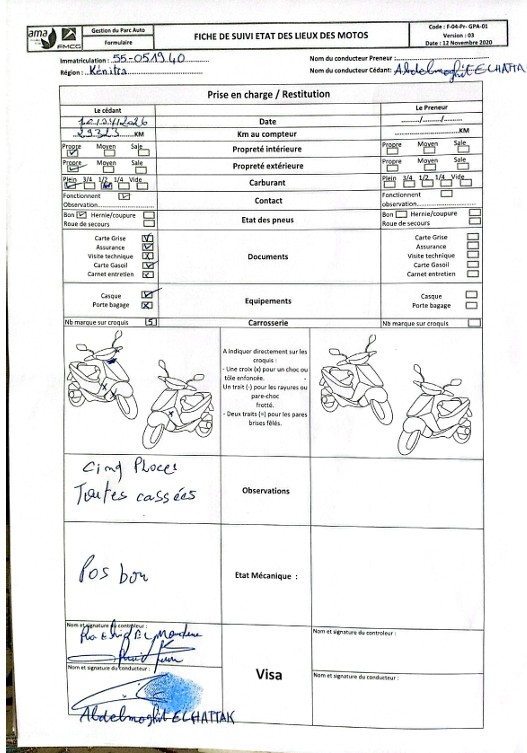 ama
FMCG
Gestion du Parc Auto
Formulaire
FICHE DE SUIVI ETAT DES LIEUX DES MOTOS
Code : F-04-Pr- GPA-01
Version : 03
Date : 12 Novembre 2020
Immatriculation : 55-051940
Nom du conducteur Preneur :
Région : Kénitra
Nom du conducteur Cédant: Abdelmoghit ELHATTAK
Prise en charge / Restitution
Le cédant
Le Preneur
Date
29323 KM
Km au compteur
KM
Propre Moyen Sale
Propreté intérieure
Propre Moyen Sale
Propre Moyen Sale
Propreté extérieure
Propre Moyen Sale
Plein 3/4 1/2 1/4 Vide
Carburant
Plein 3/4 1/2 1/4 Vide
Fonctionnent
Observation
Contact
Fonctionnent
observation
Bon Hernie/coupure
Roue de secours
Etat des pneus
Bon Hernie/coupure
Roue de secours
Carte Grise
Assurance
Visite technique
Carte Gasoil
Carnet entretien
Documents
Carte Grise
Assurance
Visite technique
Carte Gasoil
Carnet entretien
Casque
Porte bagage
Equipements
Casque
Porte bagage
Nb marque sur croquis 5
Carrosserie
Nb marque sur croquis
A indiquer directement sur les
croquis :
- Une croix (x) pour un choc ou
tôle enfoncée.
Un trait (-) pour les rayures ou
pare-choc
frotté.
- Deux traits (=) pour les pares
brises fêlés.
Cinq Places
Toutes cassées
Observations
Pas bon
Etat Mécanique :
Nom et signature du controleur :
Nom et signature du controleur :
Visa
Nom et signature du conducteur :
Nom et signature du conducteur :
Abdelmoghit ELHATTAK